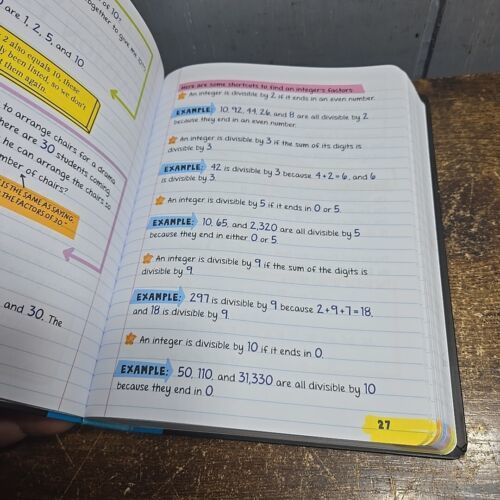 of 10?
together to give me 10?"
are 1, 2, 5, and 10
2 also equals 10, these
been listed, so we don't
them again.
to arrange chairs for a drama
there are 30 students coming,
he can arrange the chairs so
number of chairs?
IS THE SAME AS SAYING
THE FACTORS OF 30."
and 30. The
Here are some shortcuts to find an integer's factors:
An integer is divisible by 2 if it ends in an even number.
EXAMPLE: 10, 92, 44, 26, and 8 are all divisible by 2
because they end in an even number.
An integer is divisible by 3 if the sum of its digits is
divisible by 3.
EXAMPLE: 42 is divisible by 3 because 4+2=6, and 6
is divisible by 3.
An integer is divisible by 5 if it ends in 0 or 5.
EXAMPLE: 10, 65, and 2,320 are all divisible by 5
because they end in either 0 or 5.
An integer is divisible by 9 if the sum of the digits is
divisible by 9.
EXAMPLE: 297 is divisible by 9 because 2+9+7=18,
and 18 is divisible by 9.
An integer is divisible by 10 if it ends in 0.
EXAMPLE: 50, 110, and 31,330 are all divisible by 10
because they end in 0.
27